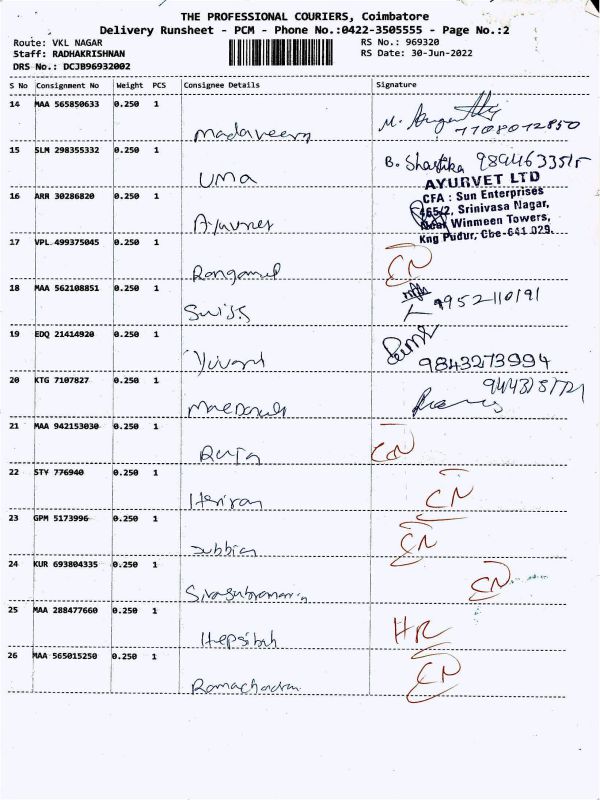 THE PROFESSIONAL COURIERS, Coimbatore
Delivery Runsheet - PCM - Phone No.:0422-3505555 - Page No.:2
Route: VKL NAGAR RS No.: 969320
Staff: RADHAKRISHNAN RS Date: 30-Jun-2022
DRS No.: DCJB96932002
S No Consignment No Weight PCS Consignee Details Signature
14 MAA 565850633 0.250 1
Madaveera
M.
7708072850
15 SLM 298355332 0.250 1
UMA
B. Sharfika
16 ARR 30286820 0.250 1
AYURVET LTD
CFA : Sun Enterprises
465/2, Srinivasa Nagar,
Near Winmeen Towers,
Kng Pudur, Cbe-641 029.
17 VPL 499375045 0.250 1
CN
18 MAA 562108851 0.250 1
Swiss
9952110191
19 EDQ 21414920 0.250 1
9843273994
20 KTG 7107827 0.250 1
21 MAA 942153030 0.250 1
CN
22 STY 776940 0.250 1
Hariran
CN
23 GPM 5173996 0.250 1
Subbian
CN
24 KUR 693804335 0.250 1
CN
25 MAA 288477660 0.250 1
Hepsibah
HR
26 MAA 565015250 0.250 1
CN